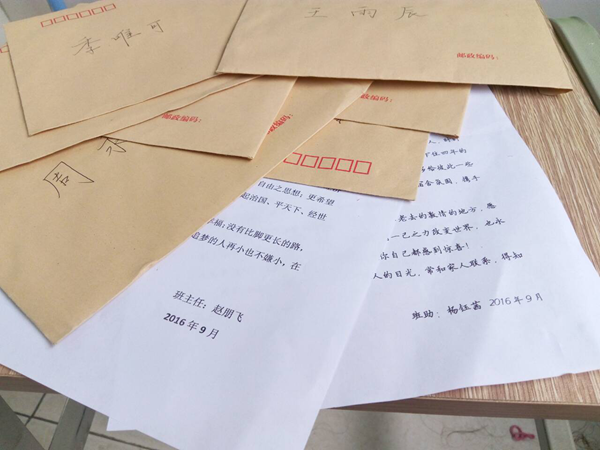 李唯可
王雨辰
邮政编码：
邮政编码：
邮政编码：
周
自由之思想；更希望
起治国、平天下、经世
幸福；没有比脚更长的路，
追梦的人再小也不嫌小，在
班主任：赵朋飞
2016年9月
下住四年的
给彼此一些
宿舍氛围，携手
老去的敷情的地方，愿
一己之力改变世界，也永
你自己都感到惊喜！
人的目光，常和家人联系，得知
班助：杨钰茜 2016年9月